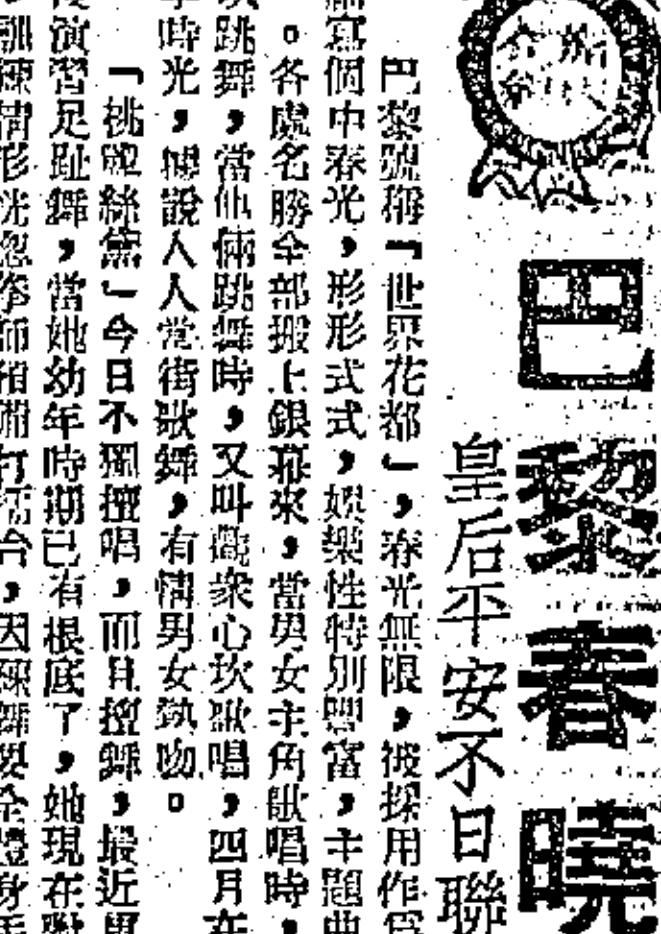 巴黎春曉
皇后平安不日聯
巴黎號稱「世界花都」，春光無限，被採用作爲
寫個中春光，形形式式，娛樂性特別豐富，主題曲
。各處名勝全部搬上銀幕來，當男女主角歌唱時，
跳舞，當他倆跳舞時，又叫觀衆心坎歌唱，四月在
時光，據說人人當街歌舞，有情男女熱吻。
「桃麗絲黛」今日不獨擅唱，而且擅舞，最近
演習足趾舞，當她幼年時期已有根底了，她現在
訓練情形
，因練舞要全體身